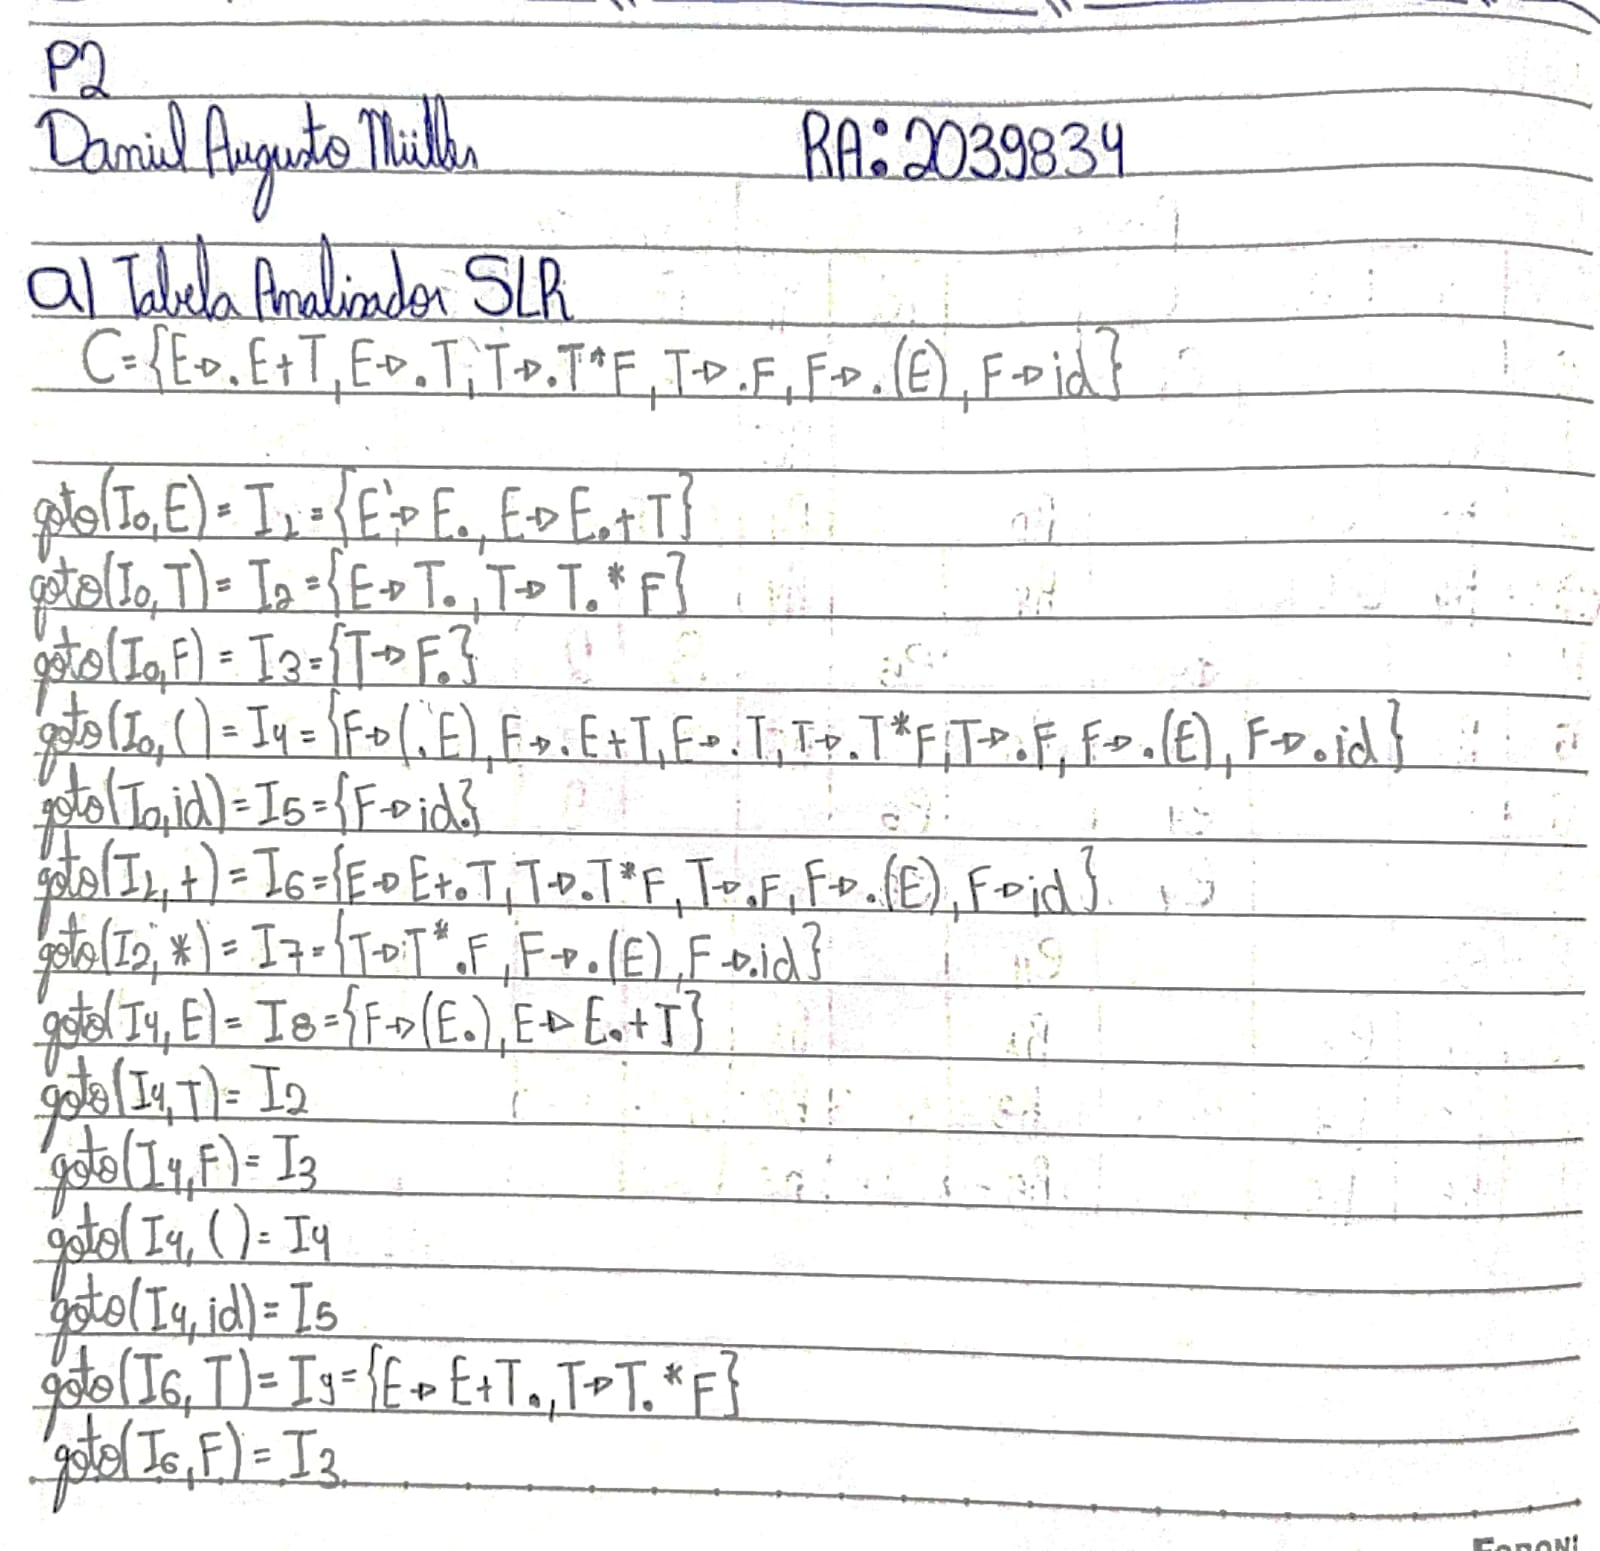 P2
Daniel Augusto Müller RA: 2039834
a) Tabela Analisador SLR
C={E→.E+T, E→.T, T→.T*F, T→.F, F→.(E), F→id}
goto(I0,E) = I1 = {E'→E., E→E.+T}
goto(I0,T) = I2 = {E→T., T→T.*F}
goto(I0,F) = I3 = {T→F.}
goto(I0,() = I4 = {F→(.E), E→.E+T, E→.T, T→.T*F, T→.F, F→.(E), F→.id}
goto(I0,id) = I5 = {F→id.}
goto(I1,+) = I6 = {E→E+.T, T→.T*F, T→.F, F→.(E), F→id}
goto(I2,*) = I7 = {T→T*.F, F→.(E), F→.id}
goto(I4,E) = I8 = {F→(E.), E→E.+T}
goto(I4,T) = I2
goto(I4,F) = I3
goto(I4,() = I4
goto(I4,id) = I5
goto(I6,T) = I9 = {E→E+T., T→T.*F}
goto(I6,F) = I3